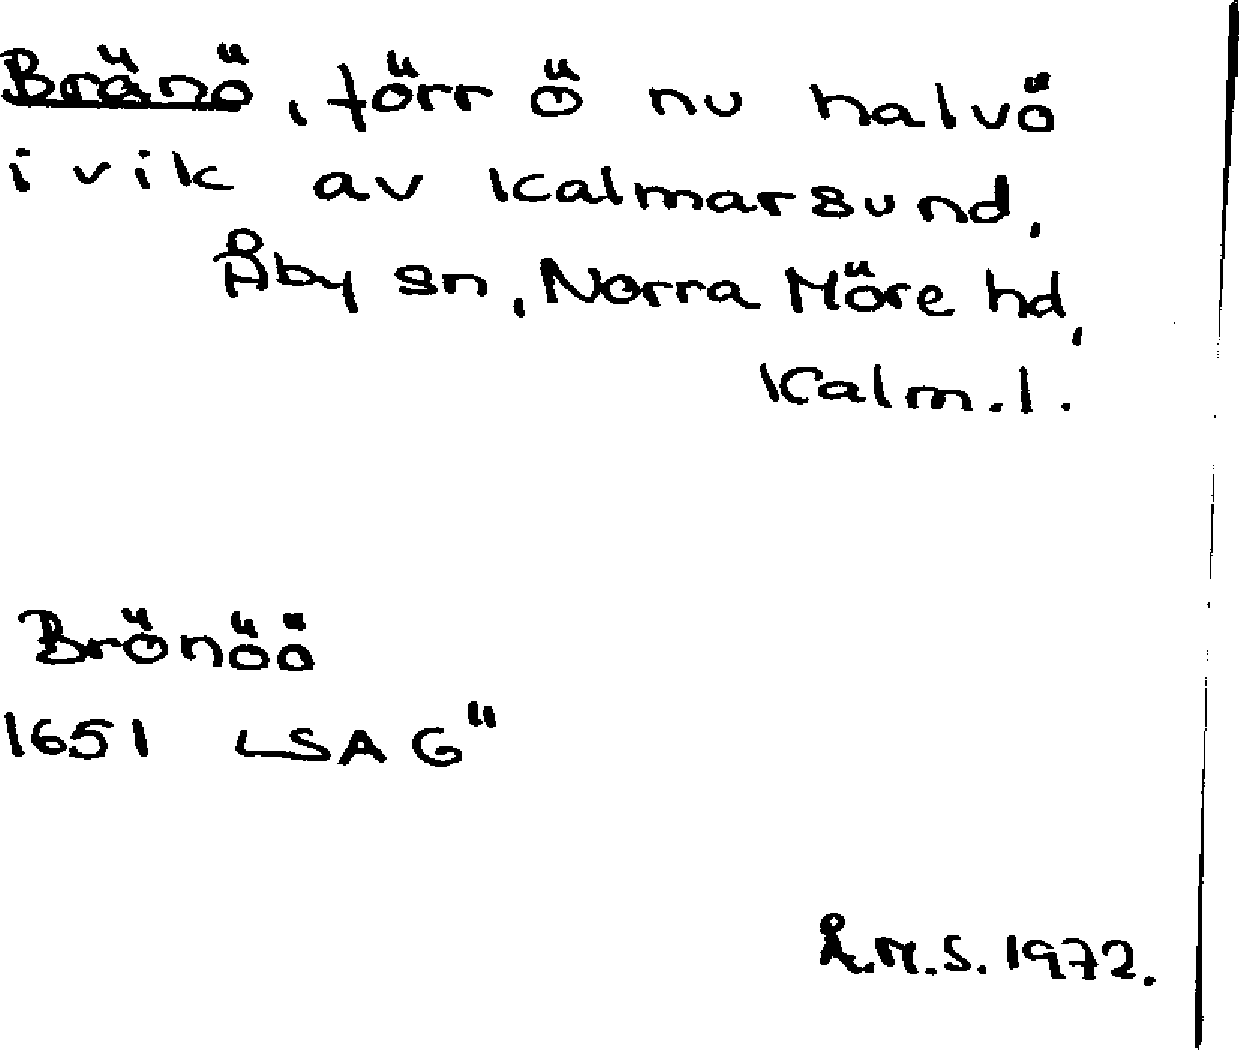 Bränö, förr ö nu halvö
i vik av Kalmarsund,
Åby sn, Norra Möre hd,
Kalm.l.
Brönöö
1651 LSA G"
Å.M.S. 1972.